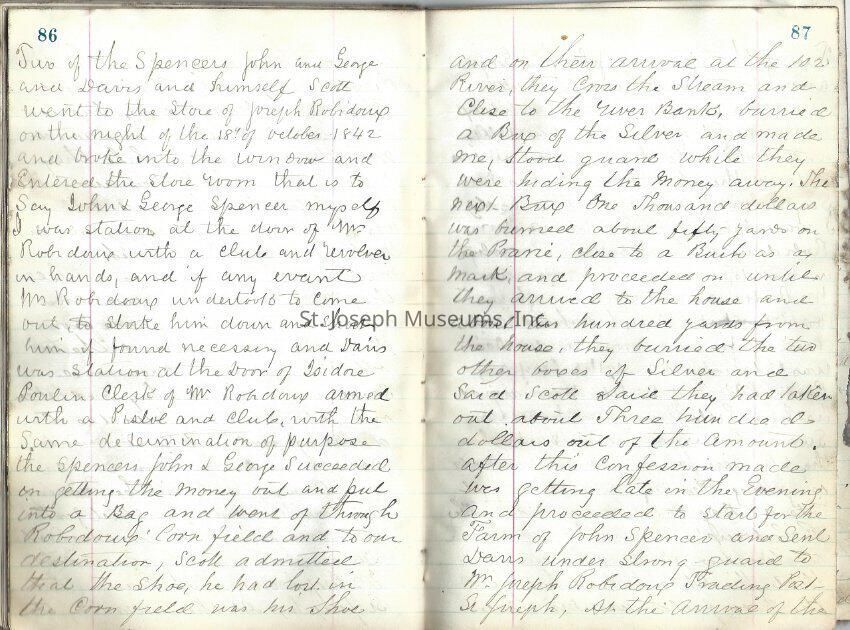 86
Two of the Spencers John and George
and Davis and himself Scott
went to the Store of Joseph Robidoux
on the night of the 18th of october 1842
and broke into the window and
Entered the Store room that is to
Say John & George Spencer myself
I was station at the door of Mr
Robidoux with a club and revolver
in hands, and if any event
Mr Robidoux undertook to come
out, to stroke him down and
him if found necessary and Davis
was station at the Door of Isidore
Poulin Clerk of Mr Robidoux armed
with a Pistol and Club, with the
Same determination of purpose
the Spencers John & George Succeeded
in getting the money out and put
into a Bag and went of through
Robidoux Corn field and to our
destination, Scott admitted
that the Shoe, he had lost in
the Corn field was his Shoe
87
and on their arrival at the 102
River, they Cross the Stream and
Close to the river Bank, burried
a Box of the Silver and made
me, Stood guard while they
were hiding the Money away. The
next Box One Thousand dollars
was burried about fifty yards on
the Prarie, close to a Bush as a
Mark, and proceeded on until
they arrived to the house and
hundred yards from
the house, they burried the two
other boxes of Silver and
Said Scott Said they had taken
out about Three hundred
dollars out of the amount.
after this Confession made
was getting late in the Evening
and proceeded to start for the
Farm of John Spencer and Sent
Davis under Strong guard to
Mr Joseph Robidoux Trading Post
St Joseph, At the Arrival of the
St. Joseph Museums, Inc.